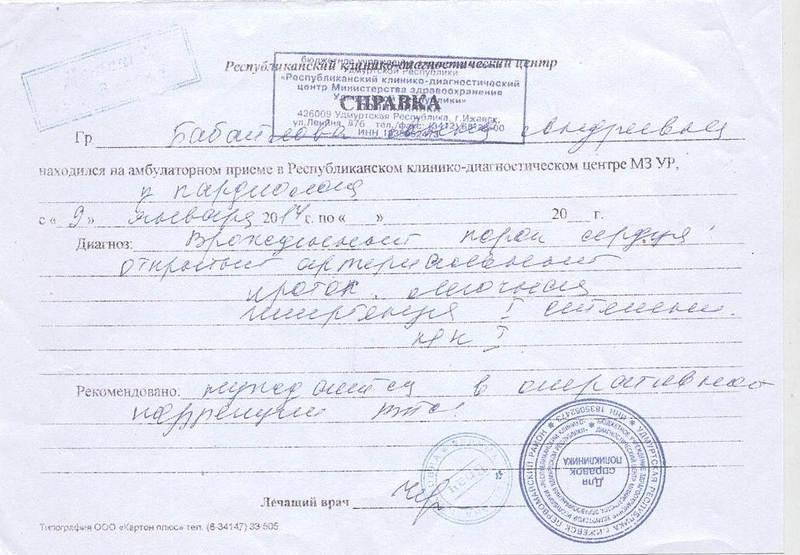 Республиканский клинико-диагностический центр
бюджетное учреждение
Удмуртской Республики
«Республиканский клинико-диагностический
центр Министерства здравоохранения
Удмуртской Республики»
СПРАВКА
426009 Удмуртская Республика, г.Ижевск,
ул.Ленина, 87б тел./факс:
ИНН
Гр Андреевны
находился на амбулаторном приеме в Республиканском клинико-диагностическом центре МЗ УР,
у кардиолога
с « 9 » января 2014 г. по « » 20 г.
Диагноз: Врожденный порок сердца:
открытый артериальный
проток. Легочная
гипертензия I степени.
НК I
Рекомендовано: нуждается в оперативной
коррекции
ВРАЧ
Для
справок
ПОЛИКЛИНИКА
УДМУРТСКАЯ РЕСПУБЛИКА Г.ИЖЕВСК ПЕРВОМАЙСКИЙ РАЙОН
Лечащий врач
Типография ООО «Картон плюс» тел. (8-34147) 33 505